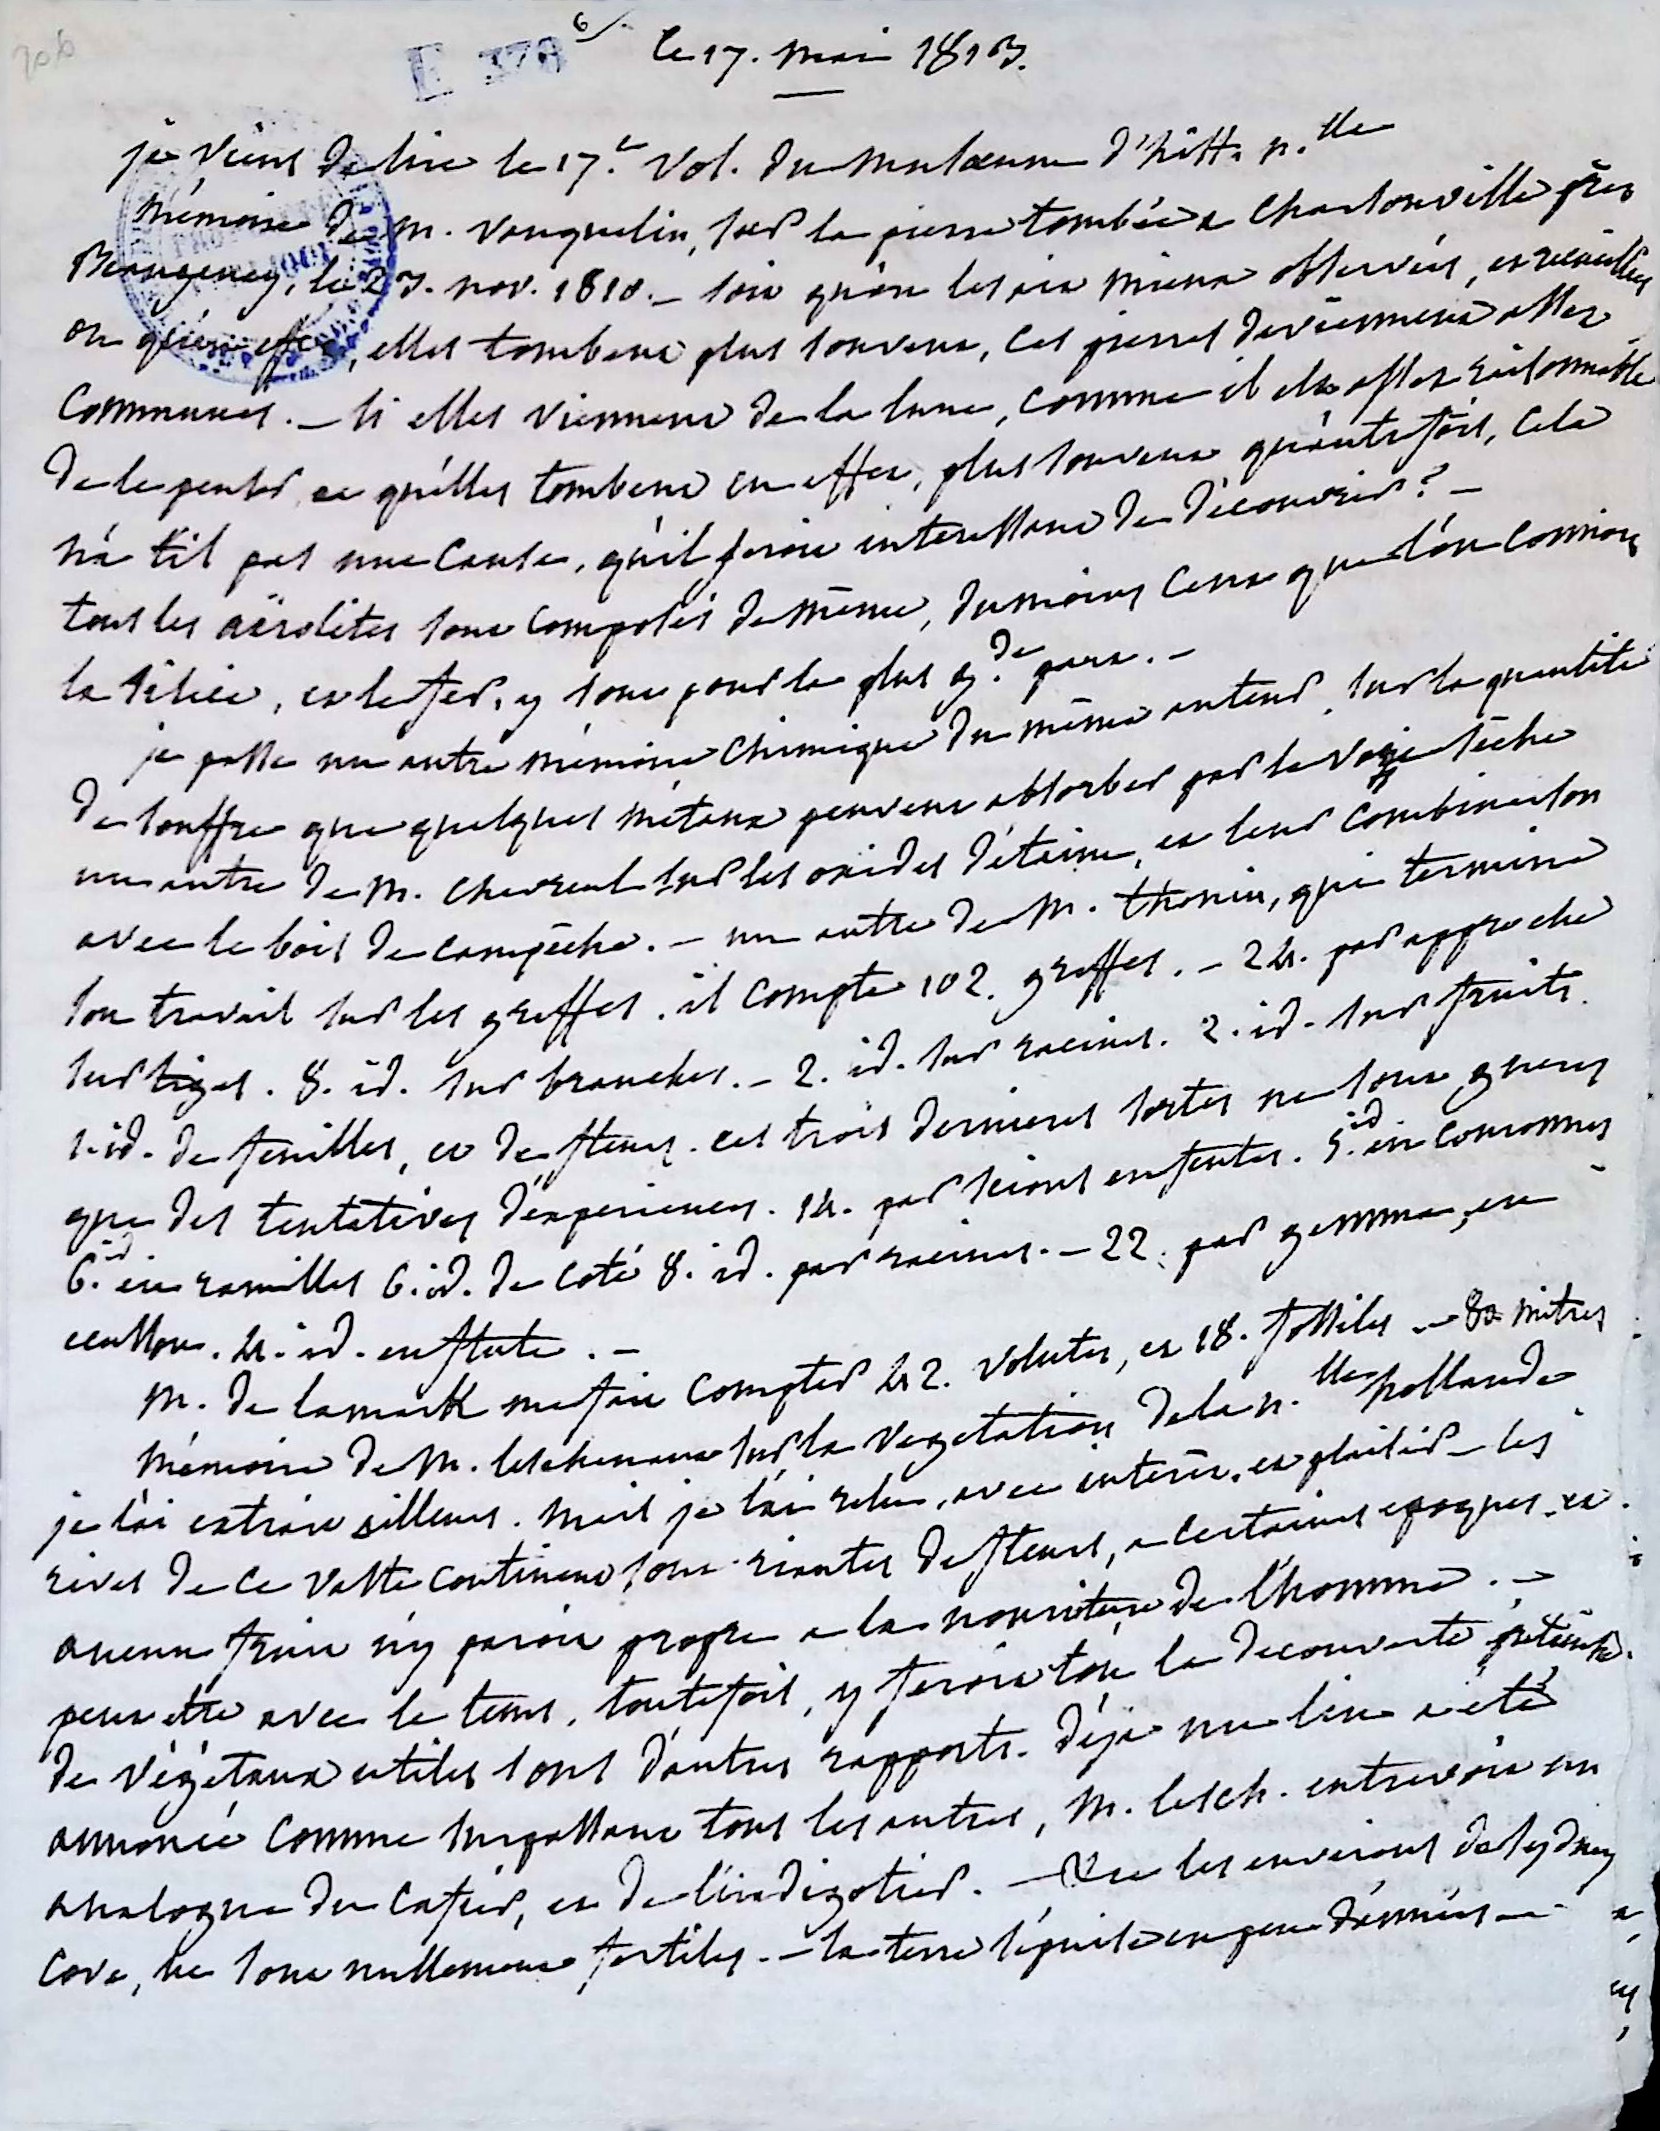 206
E 378
6/.
le 17. mai 1813.
je viens de lire le 17.e vol. du musæum d'hist. n.lle
mémoire de m. vauquelin, sur la pierre tombée a Charsonville près
Beaugency, le 23. nov. 1810. – soit qu'on les ait mieux observées, et recueillies
ou qu'en effet, elles tombent plus souvent, ces pierres deviennent assez
communes. – si elles viennent de la lune, comme il est assez raisonnable
de le penser, et qu'elles tombent en effet, plus souvent qu'autrefois, cela
n'a t'il pas une cause, qu'il seroit interessant de découvrir? –
tous les aërolites sont composés de même, du moins ceux que l'on connoit
la silice, et le fer, y sont pour la plus g.de part. –
je passe un autre mémoire chimique du même auteur, sur la quantité
de souffre que quelques métaux peuvent absorber par la voye sèche
un autre de m. chevreul sur les oxides d'étaim, et leur combinaison
avec le bois de campêche. – un autre de m. thouin, qui termine
son travail sur les greffes. il compte 102. greffes. – 24. par approche
sur tiges. 8. id. sur branches. – 2. id. sur racines. 2. id. sur fruits.
1. id. de feuilles, et de fleurs. ces trois dernieres sortes ne sont gueres
que des tentatives d'experiences. 14. par scions en fentes. 5. id en couronnes
6. id. en ramilles 6. id. de coté 8. id. par racines. – 22. par gemma, en
ecusson. 4. id. en flute. –
m. de lamark me fait compter 42. volutes, et 18. fossiles – 80 mitres
mémoire de m. leschenaut sur la vegetation de la n.lle hollande
je l'ai extrait ailleurs. mais je l'ai relu, avec interêt, et plaisir – les
rives de ce vaste continent sont riantes de fleurs, a certaines epoques, et
aucun fruit n'y paroit propre a la nourriture de l'homme. –
peut etre avec le tems, toutefois, y feroit on la decouverte
de végétaux utiles sous d'autres rapports. déja un lin a été
annoncé comme surpassant tous les autres, m. lesch. entrevoit un
analogue du cafier, et de l'indigotier. – les environs de sydney
cove, ne sont nullement fertiles. – la terre s'épuise en peu d'années –